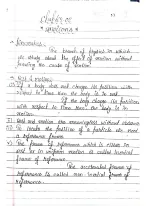 Chapter - 02
"Motions"
→ Kinematics:
The branch of physics in which
we study about the effect of motion without
knowing the cause of motion.
→ Rest & motion:
If a body does not change its position with
respect to time then the body is to rest.
If the body change its position
with respect to time then the body is to
motion.
Rest and motion are meaningless without reference
To locate the position of a particle we need
a reference frame.
The frame of reference which is either in
rest or in uniform motion is called inertial
frame of reference.
The accelerated frame of
reference is called non inertial frame of
reference.